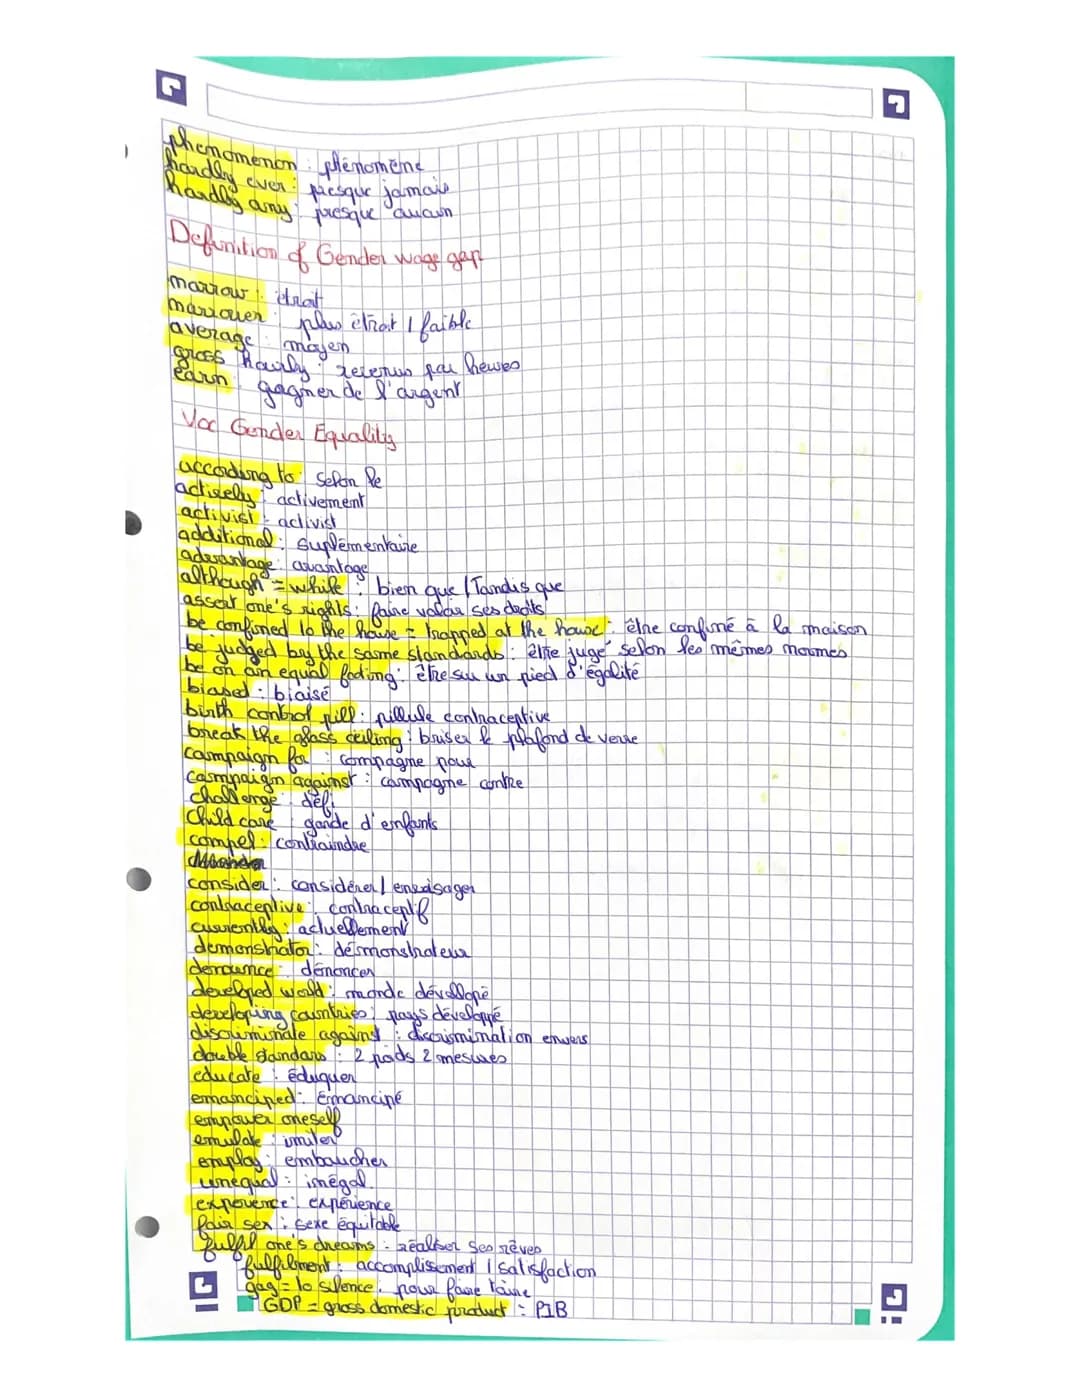 phenomenon : phénomène
hardly ever : presque jamais
hardly any : presque aucun
Definition of Gender wage gap
narrow : étroit
narrower : plus étroit / faible
average : moyen
gross hourly : revenus par heures
earn : gagner de l'argent
Voc Gender Equality
according to : selon le
actively : activement
activist : activist
additional : suplémentaire
advantage : avantage
although = while : bien que / Tandis que
assert one's rights : faire valoir ses droits
be confined to the house = trapped at the house : être confiné à la maison
be judged by the same standards : être jugé selon les mêmes normes
be on an equal footing : être sur un pied d'égalité
biased : biaisé
birth control pill : pillule contraceptive
break the glass ceiling : briser le plafond de verre
campaign for : compagne pour
campaign against : campagne contre
challenge : défi
Child care : garde d'enfants
compel : contraindre
consider : considérer / envisager
contraceptive : contraceptif
currently : actuellement
demonstrator : démonstrateur
denounce : dénoncer
developed world : monde dévellopé
developing countries : pays développé
discriminate against : discrimination envers
double standars : 2 poids 2 mesures
educate : éduquer
emancipated : émancipé
empower oneself
emulate : imiter
employ : embaucher
unequal : inégal
experience : expérience
fair sex : sexe équitable
fulfil one's dreams : réaliser ses rêves
fulfilment : accomplisement / satisfaction
gag = to silence : pour faire taire
GDP = gross domestic product : PIB